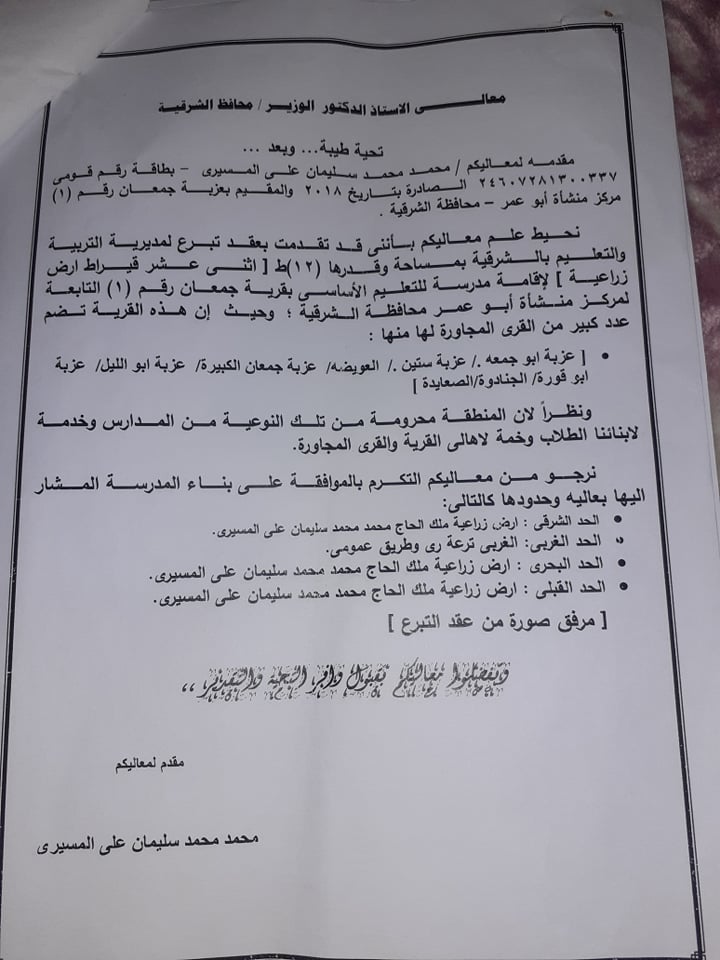 معالى الاستاذ الدكتور الوزير / محافظ الشرقية
تحية طيبة... وبعد ...
مقدمه لمعاليكم / محمد محمد سليمان على المسيرى – بطاقة رقم قومى
٢٤٦٠٧٢٨١٣٠٠٣٣٧ الصادرة بتاريخ ٢٠١٨ والمقيم بعزبة جمعان رقم (١)
مركز منشأة أبو عمر – محافظة الشرقية .
نحيط علم معاليكم بأننى قد تقدمت بعقد تبرع لمديرية التربية
والتعليم بالشرقية بمساحة وقدرها (١٢)ط [ اثنى عشر قيراط ارض
زراعية ] لإقامة مدرسة للتعليم الأساسى بقرية جمعان رقم (١) التابعة
لمركز منشأة أبو عمر محافظة الشرقية ؛ وحيث إن هذه القرية تضم
عدد كبير من القرى المجاورة لها منها :
• [ عزبة ابو جمعه ./ عزبة ستين ./ العويضه/ عزبة جمعان الكبيرة/ عزبة ابو الليل/ عزبة
ابو قورة/ الجنادوة/الصعايدة ]
ونظراً لان المنطقة محرومة من تلك النوعية من المدارس وخدمة
لابنائنا الطلاب وخمة لاهالى القرية والقرى المجاورة.
نرجو من معاليكم التكرم بالموافقة على بناء المدرسة المشار
اليها بعاليه وحدودها كالتالى:
• الحد الشرقى : ارض زراعية ملك الحاج محمد محمد سليمان على المسيرى.
• الحد الغربى: الغربى ترعة رى وطريق عمومى.
• الحد البحرى : ارض زراعية ملك الحاج محمد محمد سليمان على المسيرى.
• الحد القبلى : ارض زراعية ملك الحاج محمد محمد سليمان على المسيرى.
[ مرفق صورة من عقد التبرع ]
وتفضلوا معاليكم بقبول وافر التحية والتقدير ,,
مقدم لمعاليكم
محمد محمد سليمان على المسيرى